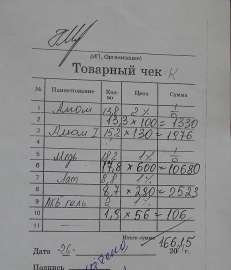 (ИП, Организация)
Товарный чек К
№ Наименование Кол-во Цена Сумма
1 Алюм 13,8 2%
2 13,3 × 100 = 1330
3 Алюм I 15,2 × 130 = 1976
4
5 Медь 18,2 1%
6 17,8 × 600 = 10680
7 Лат 8,8 1%
8 8,7 × 290 = 2523
9 АКБ гель 2 1%
10 1,9 × 56 = 106
11
Итого сумма 16615
Дата 26 20 г.
Подпись